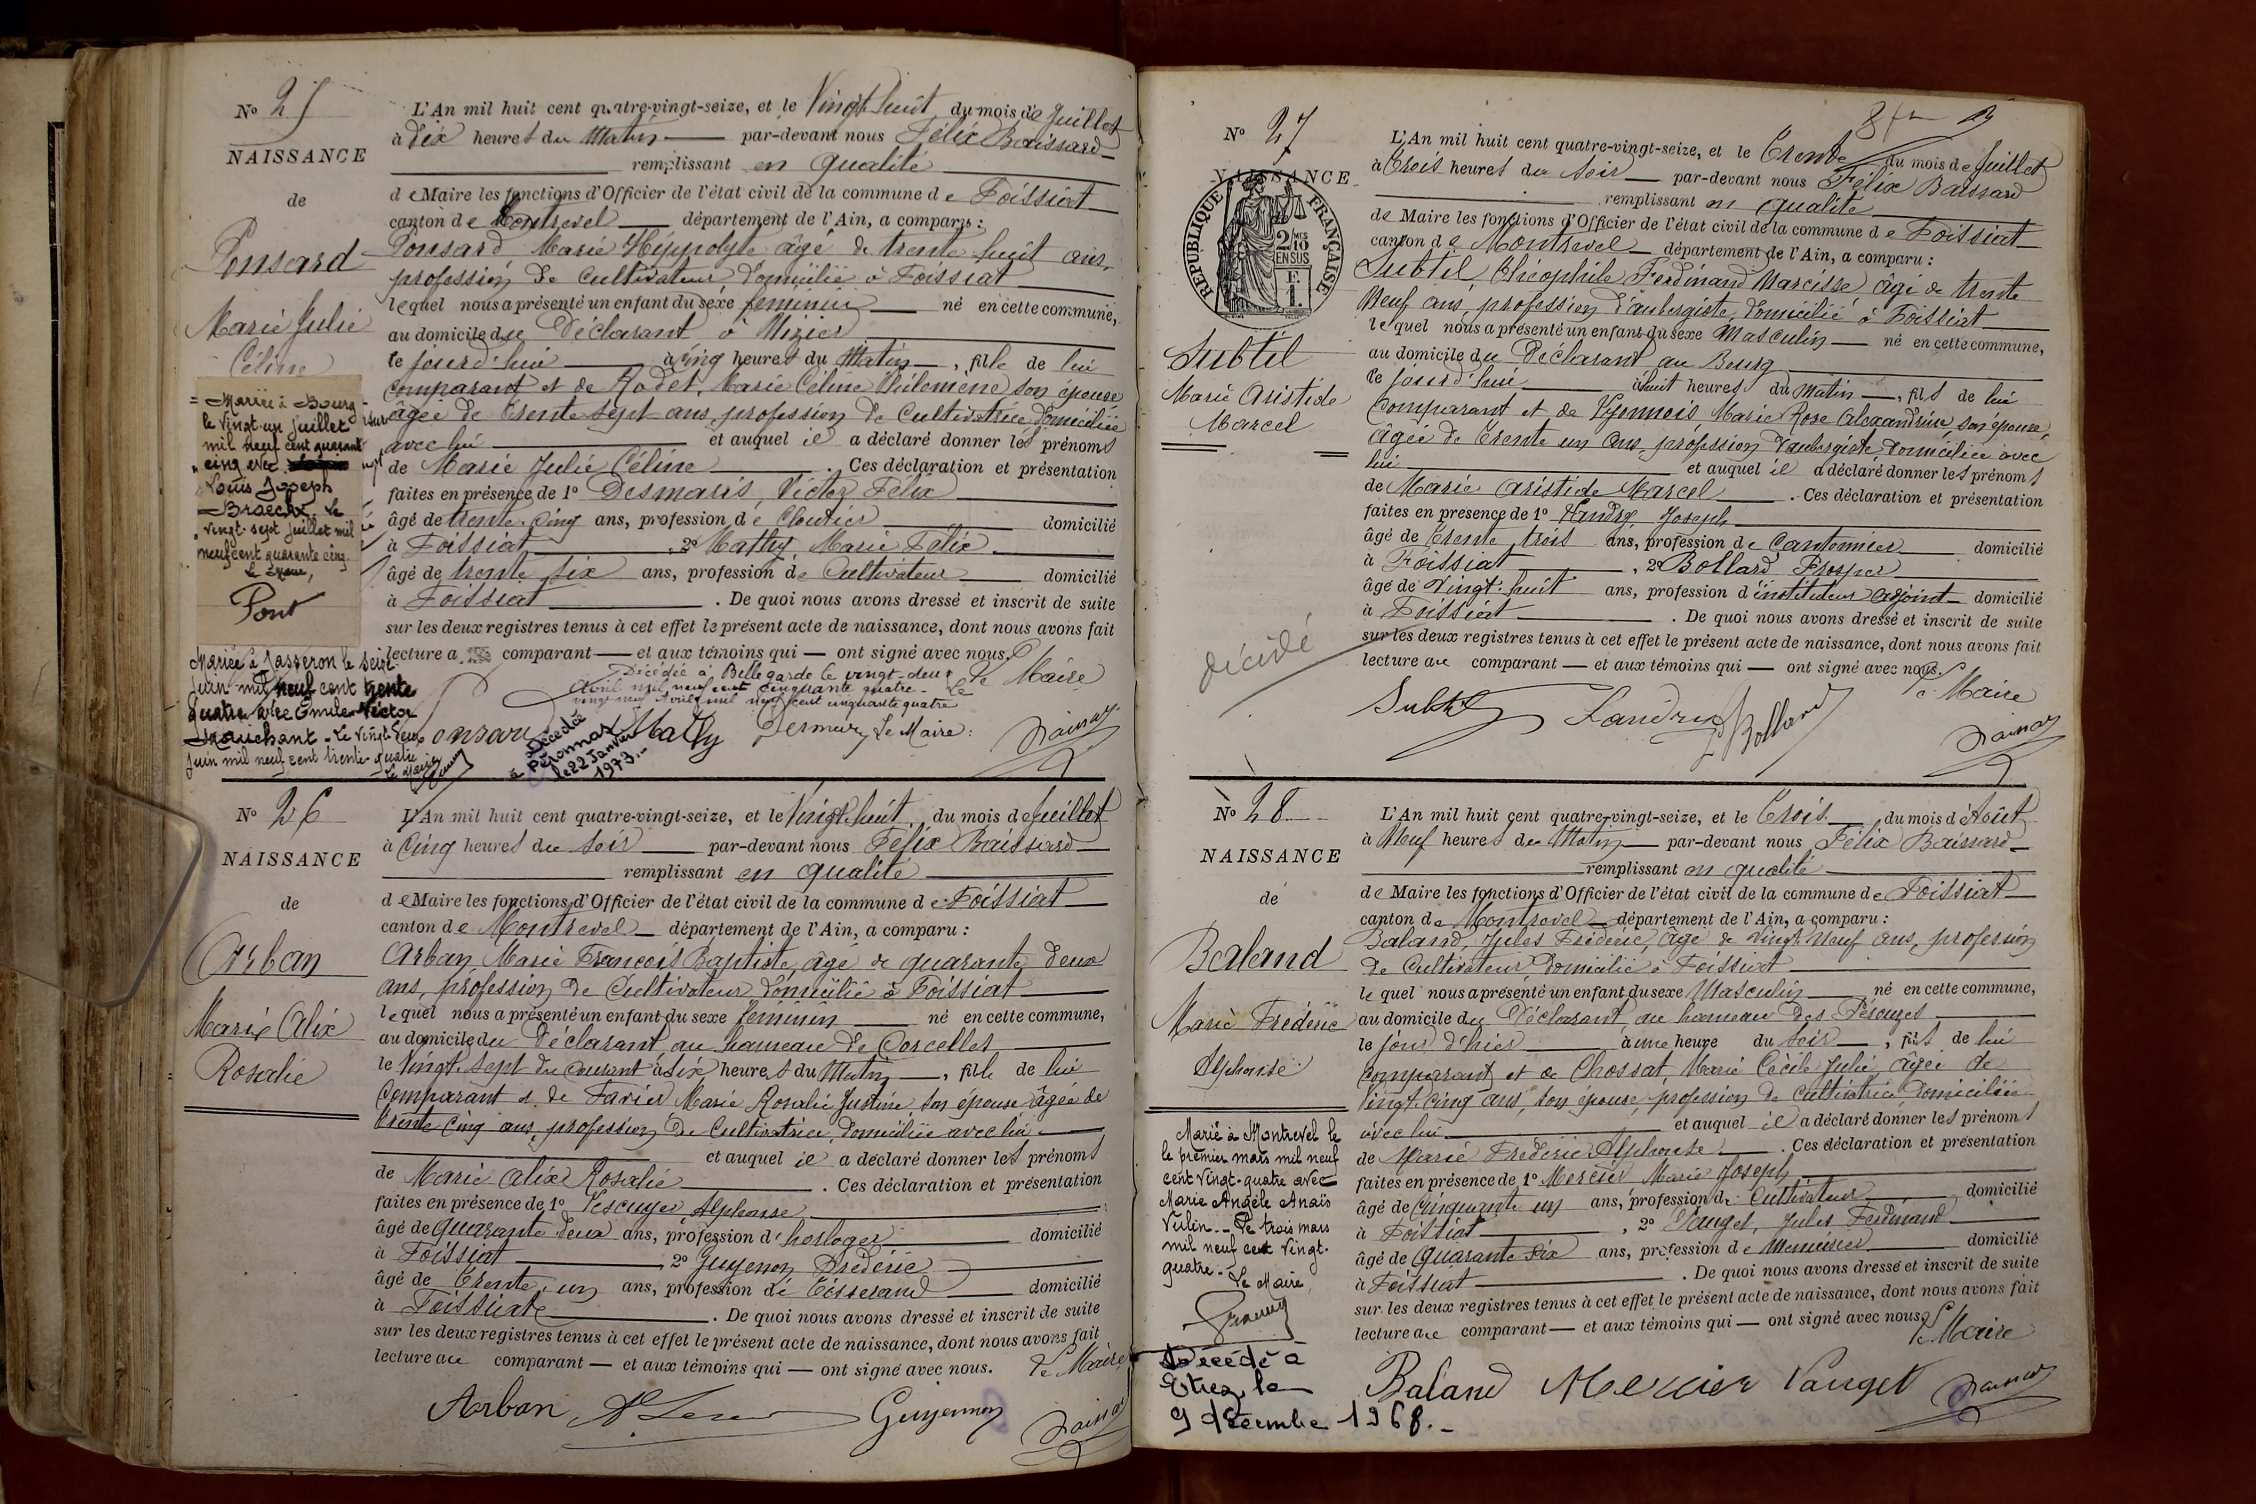 Nº 25
NAISSANCE
de
Ponsard
Marie Julie
Céline
Mariée à Bourg
le vingt-un juillet
mil neuf cent quarante
cinq avec
Louis Joseph
Braeckx. Le
vingt-sept juillet mil
neuf cent quarante cinq.
le Maire,
Pont
Mariée à Jasseron le seize
juin mil neuf cent trente
quatre avec Emile Victor
Mauchant. Le vingt-deux
juin mil neuf cent trente-quatre
Le Maire
L'An mil huit cent quatre-vingt-seize, et le Vingt huit du mois de Juillet
à Dix heures du Matin par-devant nous Félix Baissard
remplissant en qualité
de Maire les fonctions d'Officier de l'état civil de la commune de Foissiat
canton de Montrevel département de l'Ain, a comparu :
Ponsard Marie Hippolyte âgé de trente huit ans,
profession de Cultivateur domicilié à Foissiat
lequel nous a présenté un enfant du sexe féminin né en cette commune,
au domicile du Déclarant à Mizier
le jourd'hui à cinq heures du Matin, fille de lui
Comparant et de Rodet, Marie Céline Philomène son épouse
âgée de trente sept ans, profession de Cultivatrice domiciliée
avec lui et auquel il a déclaré donner les prénoms
de Marie Julie Céline . Ces déclaration et présentation
faites en présence de 1º Desmaris, Victor Félix
âgé de trente-cinq ans, profession de Cloutier domicilié
à Foissiat , 2º Mathy, Marie Félix
âgé de trente six ans, profession de Cultivateur domicilié
à Foissiat . De quoi nous avons dressé et inscrit de suite
sur les deux registres tenus à cet effet le présent acte de naissance, dont nous avons fait
lecture a comparant — et aux témoins qui — ont signé avec nous.
Le Maire
Décédée à Bellegarde le vingt-deux
Avril mil neuf cent cinquante quatre. Le
Avril mil neuf cent cinquante quatre
Le Maire :
Ponsard
Décédée
à Péronnas
le 22 Janvier
1973.-
Mathy
Nº 26
NAISSANCE
de
Arban
Marie Alix
Rosalie
L'An mil huit cent quatre-vingt-seize, et le Vingt huit du mois de Juillet
à Cinq heures du Soir par-devant nous Félix Baissard
remplissant en qualité
de Maire les fonctions d'Officier de l'état civil de la commune de Foissiat
canton de Montrevel département de l'Ain, a comparu :
Arban Marie François Baptiste, âgé de quarante deux
ans, profession de Cultivateur domicilié à Foissiat
lequel nous a présenté un enfant du sexe féminin né en cette commune,
au domicile du Déclarant au hameau de Corcelles
le Vingt-sept du courant à Six heures du Matin, fille de lui
Comparant & de Favier Marie Rosalie Justine son épouse âgée de
trente cinq ans, profession de Cultivatrice, domiciliée avec lui
et auquel il a déclaré donner les prénoms
de Marie Alix Rosalie . Ces déclaration et présentation
faites en présence de 1º Lescuyer Alphonse
âgé de quarante deux ans, profession d'horloger domicilié
à Foissiat 2º Guyenon Frédéric
âgé de trente un ans, profession de Tisserand domicilié
à Foissiat . De quoi nous avons dressé et inscrit de suite
sur les deux registres tenus à cet effet le présent acte de naissance, dont nous avons fait
lecture au comparant — et aux témoins qui — ont signé avec nous.
Le Maire
Arban Guyennon
Nº 27
NAISSANCE
REPUBLIQUE FRANÇAISE
2/10
EN SUS
F.
1.
Subtil
Marie Aristide
Marcel
décédé
L'An mil huit cent quatre-vingt-seize, et le Trente du mois de Juillet
à Trois heures du Soir par-devant nous Félix Baissard
remplissant en qualité
de Maire les fonctions d'Officier de l'état civil de la commune de Foissiat
canton de Montrevel département de l'Ain, a comparu :
Subtil Théophile Ferdinand Narcisse âgé de trente
Neuf ans, profession d'aubergiste, domicilié à Foissiat
lequel nous a présenté un enfant du sexe Masculin né en cette commune,
au domicile du Déclarant au Bourg
le jourd'hui à huit heures du Matin, fils de lui
Comparant et de Vyonnois Marie Rose Alexandrine, son épouse,
âgée de Trente un ans, profession d'aubergiste domiciliée avec
lui et auquel il a déclaré donner les prénoms
de Marie Aristide Marcel . Ces déclaration et présentation
faites en présence de 1º Landry Joseph
âgé de Trente trois ans, profession de Cantonnier domicilié
à Foissiat , 2º Bollard Prosper
âgé de Vingt-huit ans, profession d'instituteur adjoint domicilié
à Foissiat . De quoi nous avons dressé et inscrit de suite
sur les deux registres tenus à cet effet le présent acte de naissance, dont nous avons fait
lecture au comparant — et aux témoins qui — ont signé avec nous.
Le Maire
Subtil Landry Bollard
Nº 28
NAISSANCE
de
Baland
Marie Frédéric
Alphonse
Marié à Montrevel le
le premier mars mil neuf
cent vingt-quatre avec
Marie Angèle Anaïs
Vulin.- Le trois mars
mil neuf cent vingt-
quatre.-
Le Maire,
Décédé à
Etrez le
9 décembre 1968.-
L'An mil huit cent quatre-vingt-seize, et le Trois du mois d'Août
à Neuf heures du Matin par-devant nous Félix Baissard
remplissant en qualité
de Maire les fonctions d'Officier de l'état civil de la commune de Foissiat
canton de Montrevel département de l'Ain, a comparu :
Baland, Jules Frédéric, âgé de vingt Neuf ans, profession
de Cultivateur domicilié à Foissiat
lequel nous a présenté un enfant du sexe Masculin né en cette commune,
au domicile du Déclarant, au hameau des Pérouzes
le jour d'hier à une heure du soir, fils de lui
Comparant et de Chossat, Marie Cécile Julie, âgée de
Vingt-cinq ans, son épouse, profession de Cultivatrice domiciliée
avec lui et auquel il a déclaré donner les prénoms
de Marie Frédéric Alphonse . Ces déclaration et présentation
faites en présence de 1º Mercier Marie Joseph
âgé de Cinquante un ans, profession de Cultivateur domicilié
à Foissiat , 2º Vauget, Jules Ferdinand
âgé de Quarante six ans, profession de Menuisier domicilié
à Foissiat . De quoi nous avons dressé et inscrit de suite
sur les deux registres tenus à cet effet le présent acte de naissance, dont nous avons fait
lecture au comparant — et aux témoins qui — ont signé avec nous.
Le Maire
Baland Mercier Vauget